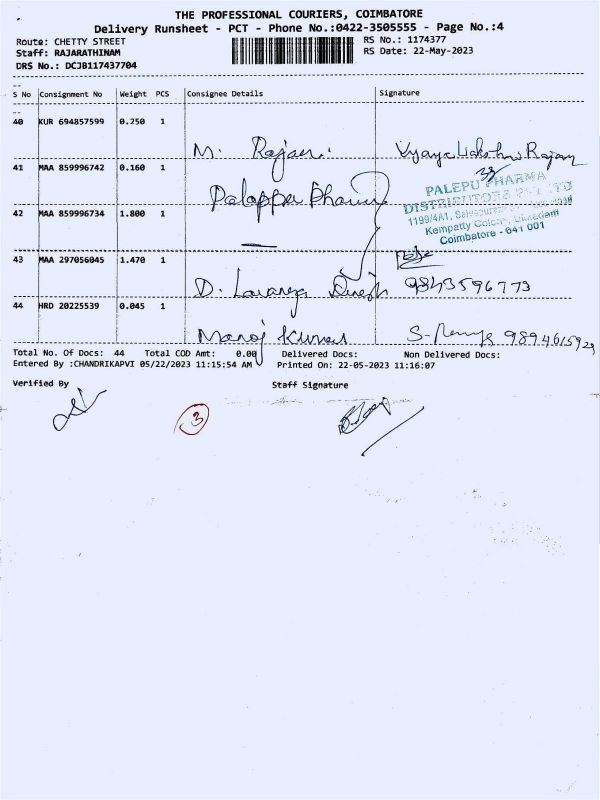 THE PROFESSIONAL COURIERS, COIMBATORE
Delivery Runsheet - PCT - Phone No.:0422-3505555 - Page No.:4
Route: CHETTY STREET RS No.: 1174377
Staff: RAJARATHINAM RS Date: 22-May-2023
DRS No.: DCJB117437704
S No Consignment No Weight PCS Consignee Details Signature
40 KUR 694857599 0.250 1
M. Rajan Rajan
41 MAA 859996742 0.160 1
PALEPU PHARMA
42 MAA 859996734 1.800 1
1199/4A1,
Kempatty Colony,
Coimbatore - 641 001
43 MAA 297056045 1.470 1
D. Lavanya Dinesh 9843596773
44 HRD 20225539 0.045 1
Manoj Kumar
Total No. Of Docs: 44 Total COD Amt: 0.00 Delivered Docs: Non Delivered Docs:
Entered By :CHANDRIKAPVI 05/22/2023 11:15:54 AM Printed On: 22-05-2023 11:16:07
Verified By Staff Signature
3